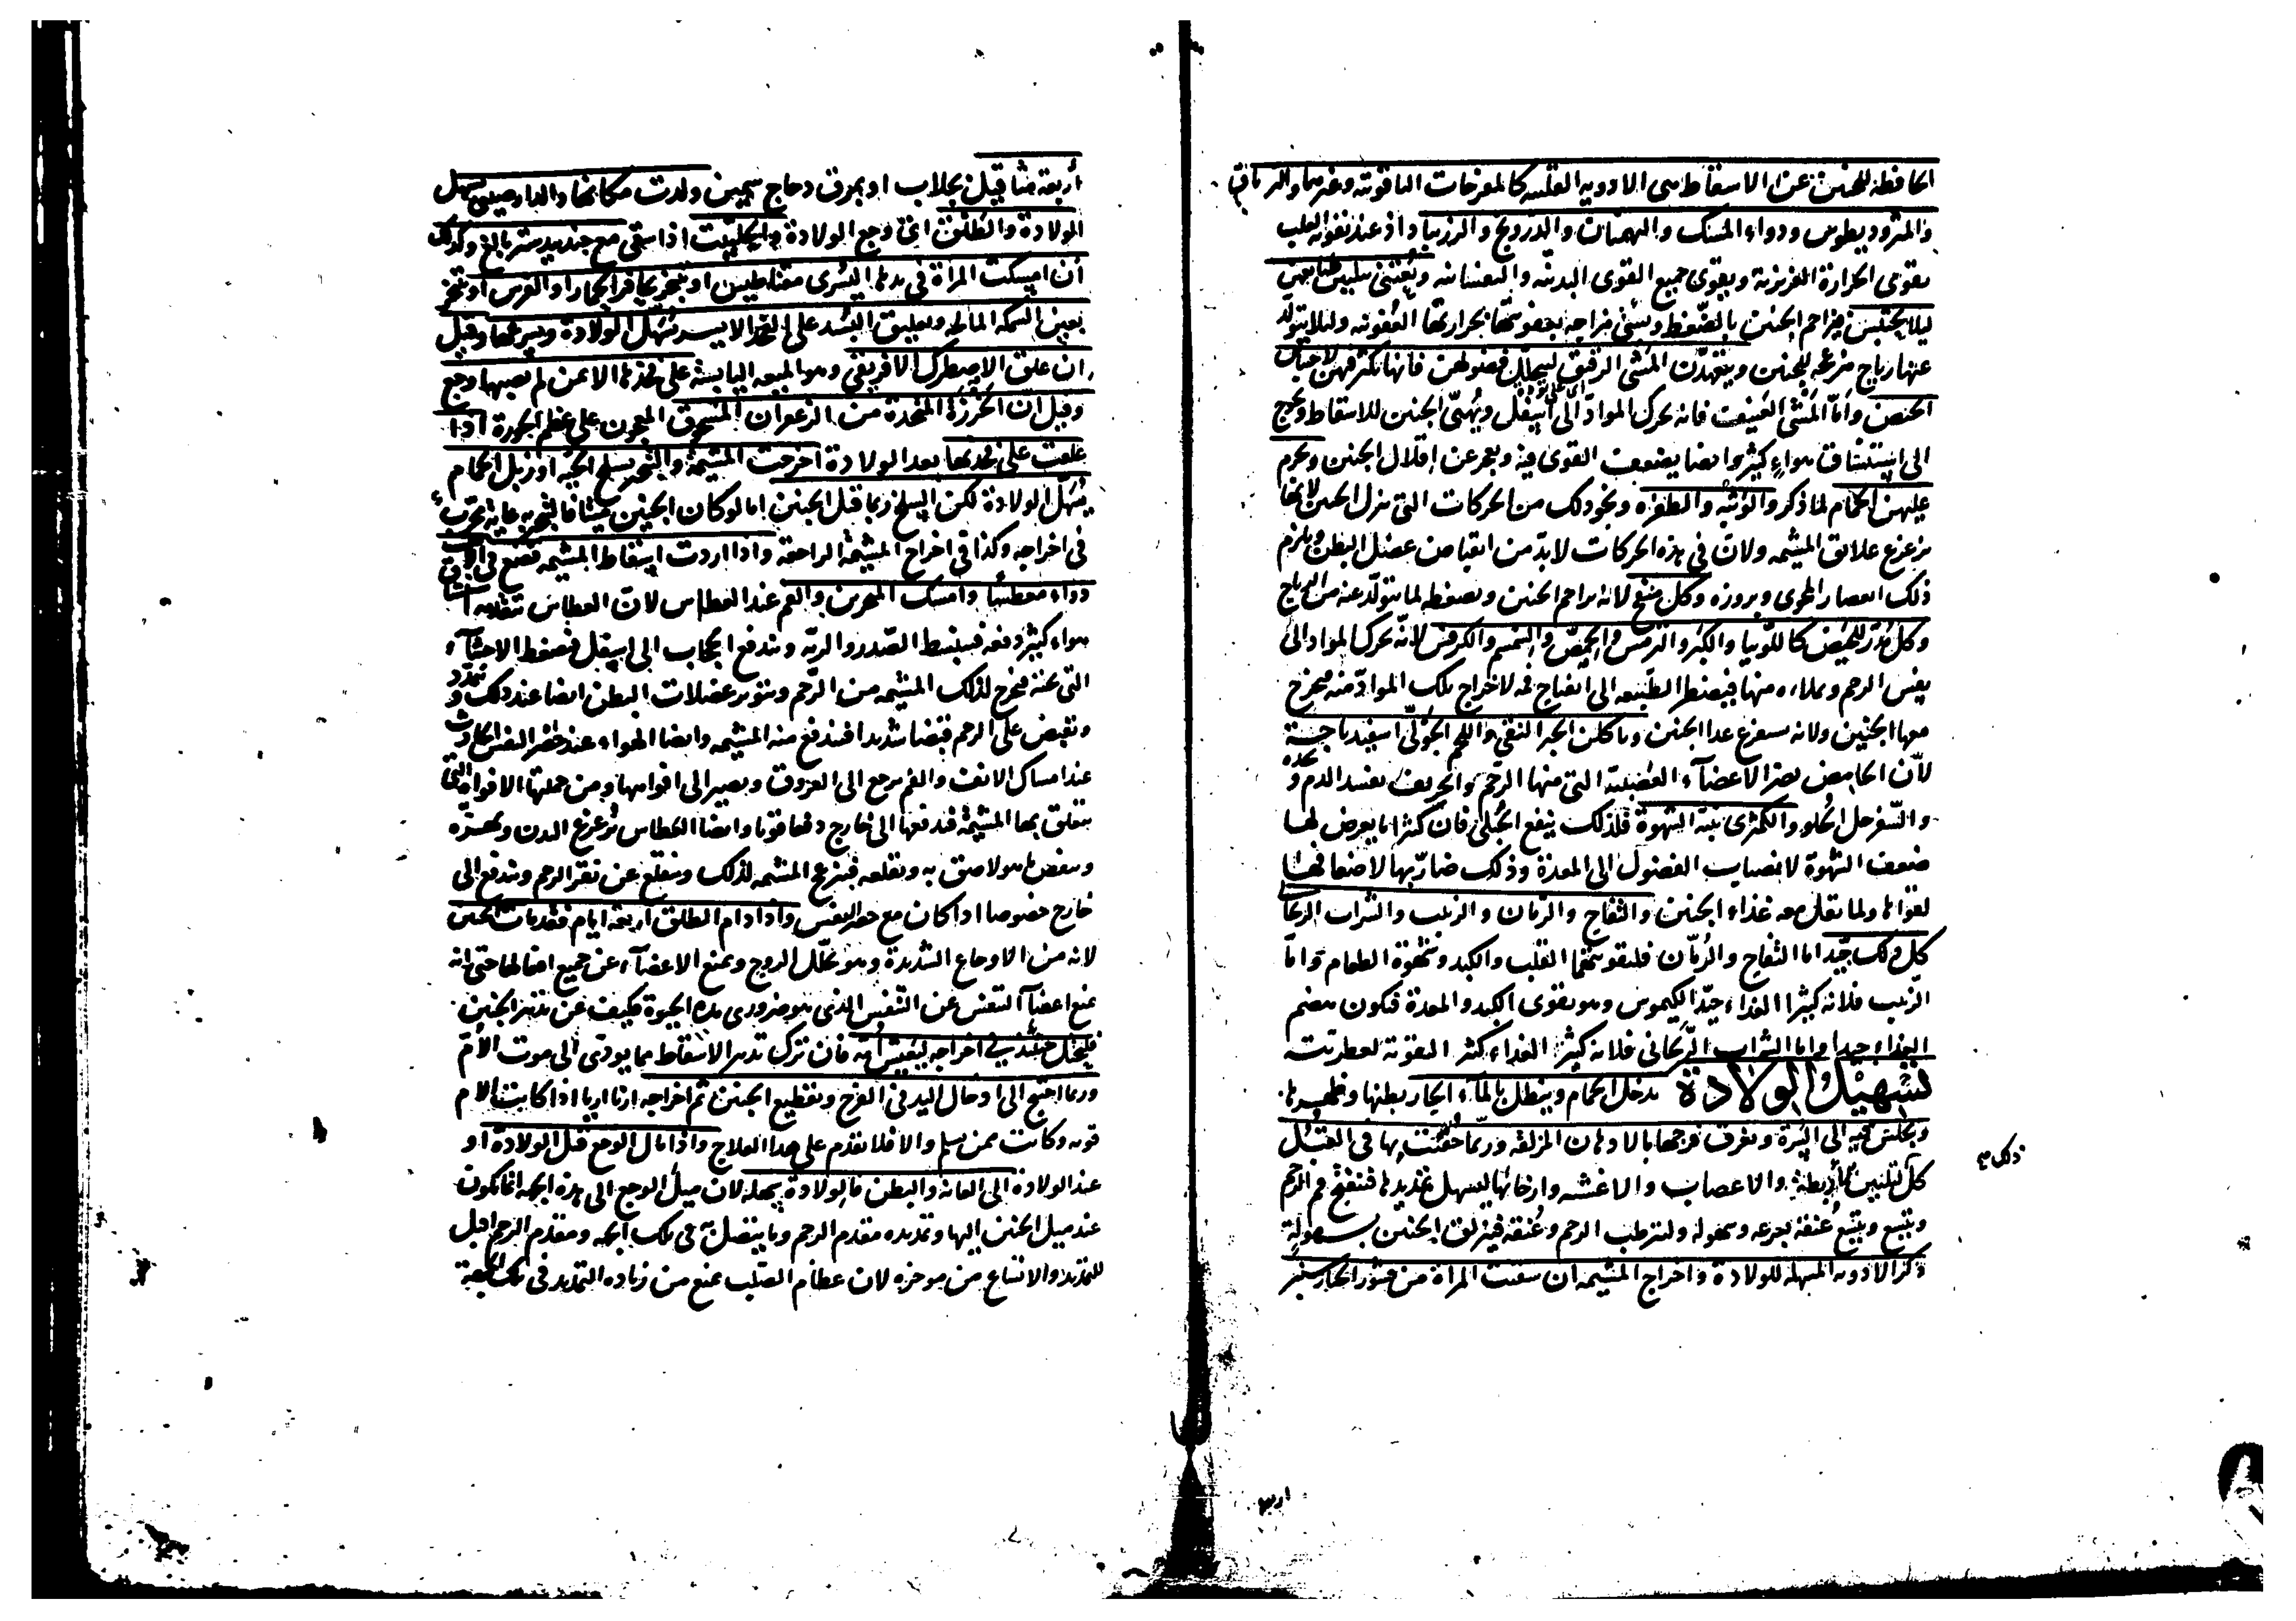 الحافظة للجنين عن الاسقاط هى الادوية القلبية كالمفرحات الياقوتية وغيرها والترياق
والمثروديطوس ودواء المسك والبهمنان والدرونج والزرنباد اذ عند تقوية القلب
يقوى الحرارة الغريزية ويقوى جميع القوى البدنية والنفسانية ويعتنى بتليين طبايعهن
ليلا يحتبس فيزاحم الجنين بالضغط ويسئ مزاجه بعفونتها بحرارتها العفونية وليلا يتولد
عنها رياح مزعجة للجنين ويتعهدن المشى الرفيق ليتحلل فضولهن فانها تكثر فيهن لاحتباس
الحيض واما المشى العنيف فانه يحرك المواد الى اسفل ويهيئ الجنين للاسقاط ويحوج
الى استنشاق هواء كثير وايضا يضعف القوى فيه ويعجز عن اقلال الجنين ويحرم
عليهن الحمام لما ذكر والوثبة والطفرة ونحو ذلك من الحركات التى تزل الجنين لانها
يزعزع علايق المشيمة ولان فى هذه الحركات لابد من انقباض عضل البطن ويلزم
ذلك انعصار المحوى وبروزه وكل منفخ لانه يزاحم الجنين ويضغطه لما يتولد عنه من الرياح
وكل مدر للحيض كاللوبيا والكبر والترمس والحمص والسمسم والكرفس لانه يحرك المواد الى
نفس الرحم ويملاءه منها فيضطر الطبيعة الى انفتاح فمه لاخراج تلك المواد منه فيخرج
معها الجنين ولانه يستفرغ غذاء الجنين وياكلن الخبز النقى واللحم الحولى اسفيدباجة
لان الحامض يضر الاعضاء العصبية التى منها الرحم والحريف يفسد الدم ويحده
والسفرجل الحلو والكمثرى ينبه الشهوة فلذلك ينفع الحبلى فان كثيرا ما يعرض لها
ضعف الشهوة لانصباب الفضول الى المعدة وذلك ضار بها لاضعافها
لقواها ولما يقل معه غذاء الجنين والتفاح والرمان والزبيب والشراب الريحانى
كل ذلك جيد اما التفاح والرمان فلتقويتهما القلب والكبد وشهوة الطعام واما
الزبيب فلانه كثير الغذاء جيد الكيموس وهو يقوى الكبد والمعدة فيكون هضم
الغذاء جيدا واما الشراب الريحانى فلانه كثير الغذاء كثير التقوية لعطريته
تسهيل الولادة يدخل الحمام وينطل بالماء الحار بطنها وظهرها
ويجلس فيه الى السرة ويعرق فرجها بالادهان المزلقة وربما حقنت بها فى القبل
كل ذلك لتليين الاربطة والاعصاب والاغشية وارخائها ليسهل تمديدها فتنفتح فم الرحم
ويتسع ويتسع عنقه بسرعة وسهولة ولترطب الرحم وعنقه فيزلق الجنين بسهولة
ذكر الادوية المسهلة للولادة واخراج المشيمة ان سقيت المراة من قشور الخيارشنبر
اربعة
أربعة مثاقيل بجلاب او بمرق دجاج سمين ولدت مكانها والدارصينى يسهل
الولادة والطلق اى وجع الولادة والحلتيت اذا سقى مع جندبيدستر بالغ وكذلك
ان امسكت المراة فى يدها اليسرى مقناطيس او تبخر بحافر الحمار او الفرس او تبخر
بعين السمكة المالحة وتعليق البسد على الفخذ الايسر يسهل الولادة ويسرعها وقيل
ان علق الاصطرك الافريقى وهو الميعة اليابسة على فخذها الايمن لم يصبها وجع
وقيل ان الخرزة المتخذة من الزعفران المسحوق المعجون على عظم الجوزة اذا
علقت على فخذها بعد الولادة اخرجت المشيمة والتبخر بسلخ الحية او زبل الحمام
يسهل الولادة لكن السلخ ربما قتل الجنين اما لو كان الجنين ميتا فالتبخر به غاية مجرب
فى اخراجه وكذا فى اخراج المشيمة الراجعة واذا اردت اسقاط المشيمة فضع فى الانف
دواء معطسا وامسك المنخرين والفم عند العطاس لان العطاس يتقدمه استنشاق
هواء كثير دفعة فينبسط الصدر والرية ويندفع الحجاب الى اسفل فيضغط الاحشاء
التى تحته فيخرج لذلك المشيمة من الرحم ويتوتر عضلات البطن ايضا عند ذلك وتمدد
وتقبض على الرحم قبضا شديدا فيندفع منه المشيمة وايضا الهواء عند حصر النفس الحادث
عند امساك الانف والفم يرجع الى العروق ويصير الى افواهها ومن جملتها الافواه التى
تتعلق بها المشيمة فيدفعها الى خارج دفعا قويا وايضا العطاس يزعزع البدن ويهزه
وينفض ما هو لاصق به ويقلعه فينزعج المشيمة لذلك وينقلع عن نقر الرحم ويندفع الى
خارج خصوصا اذا كان مع حصر النفس واذا دام الطلق اربعة ايام فقد مات الجنين
لانه من الاوجاع الشديدة وهو يحلل الروح ويمنع الاعضاء عن جميع افعالها حتى انه
يمنع اعضاء التنفس عن التنفس الذى هو ضرورى مدة الحيوة فكيف عن تدبير الجنين
فليحتل حينئذ فى اخراجه ليعيش امه فان ترك تدبير الاسقاط مما يودى الى موت الام
وربما احتيج الى ادخال اليد فى الفرج وتقطيع الجنين ثم اخراجه اربا اربا اذا كانت الام
قوية وكانت ممن يسلم والا فلا تقدم على هذا العلاج واذا مال الوجع قبل الولادة او
عند الولادة الى العانة والبطن فالولادة سهلة لان ميل الوجع الى هذه الجهة انما يكون
عند ميل الجنين اليها وتمديده مقدم الرحم وما يتصل به فى تلك الجهة ومقدم الرحم اقبل
للتمديد والاتساع من موخره لان عظام الصلب تمنع من زيادة التمديد فى تلك الجهة